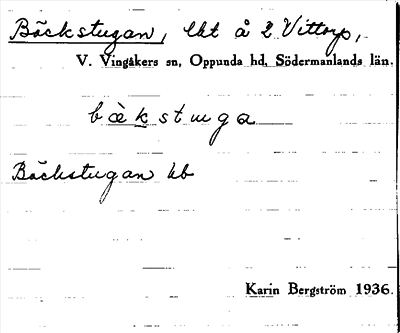 Bäckstugan, lht å 2 Vittorp,
V. Vingåkers sn, Oppunda hd, Södermanlands län.
bækstuga
Bäckstugan kb
Karin Bergström 1936.